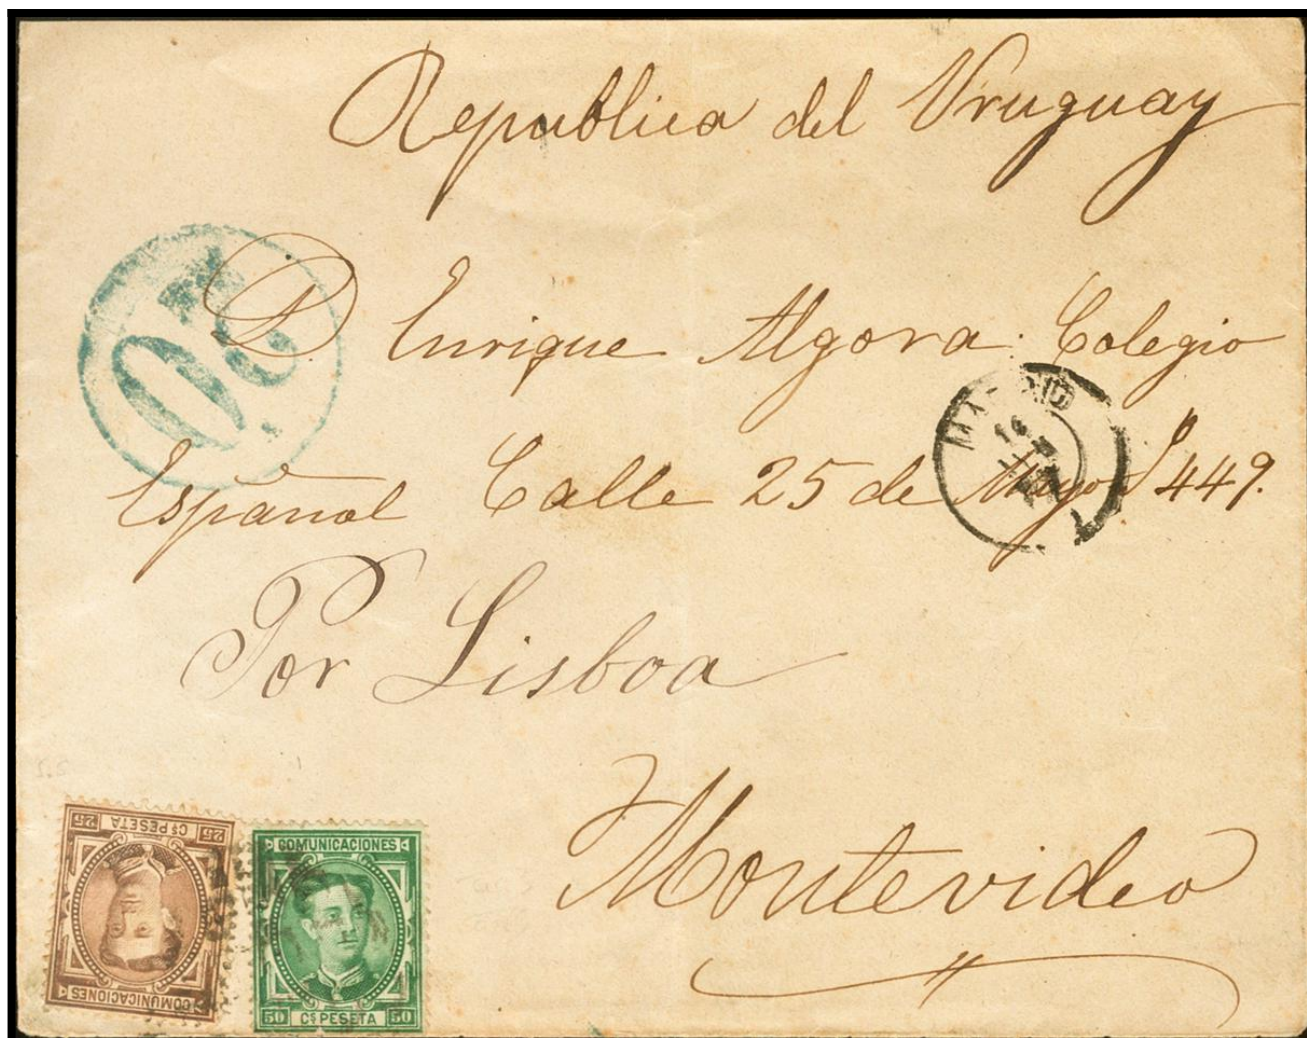 Republica del Uruguay
20
D. Enrique Algora. Colegio
Español Calle 25 de Mayo 449.
MADRID
Por Lisboa
Montevideo
25 Cs PESETA 25
COMUNICACIONES
COMUNICACIONES
50 Cs PESETA 50